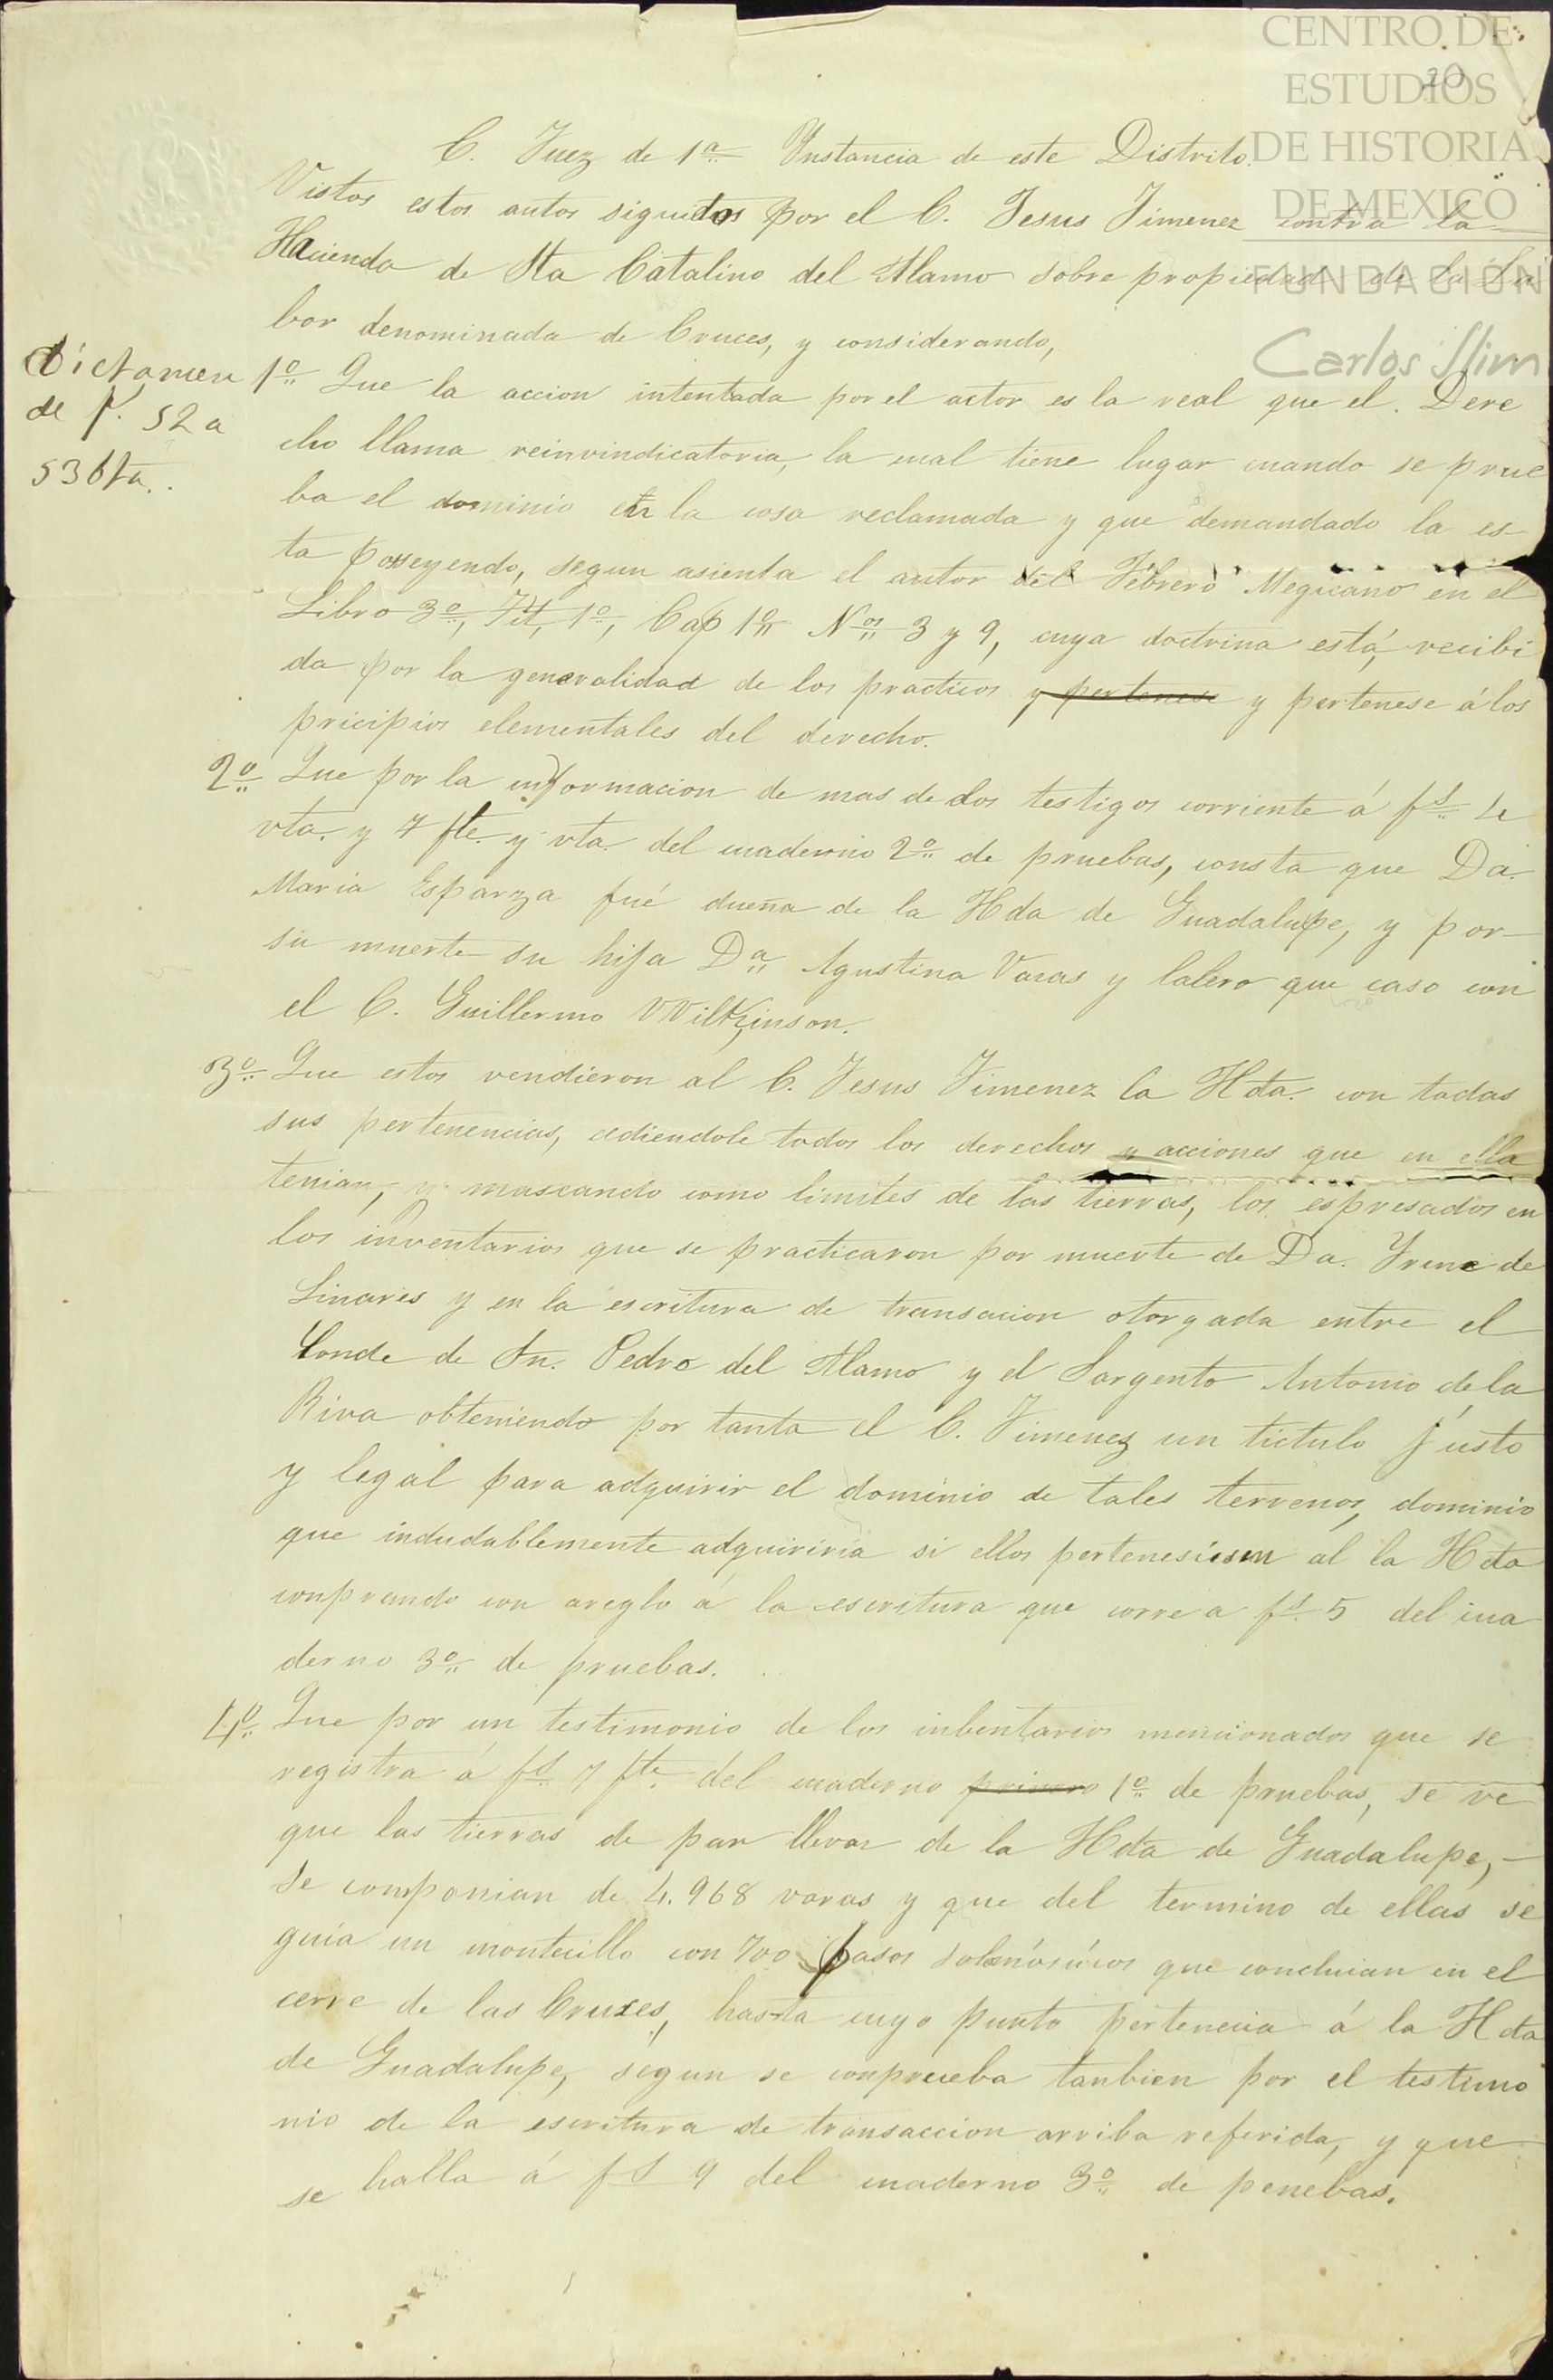 CENTRO DE
ESTUDIOS
DE HISTORIA
DE MEXICO
FUNDACIÓN
Carlos Slim
20
C. Juez de 1ª Instancia de este Distrito.
Vistos estos autos siguidos por el C. Jesus Jimenez contra la
Hacienda de Sta Catalino del Alamo sobre propiedad de la La
bor denominada de Cruces, y considerando,
Dictamen
de f. 52 a
53 bta.
1º Que la accion intentada por el actor es la real que el. Dere
cho llama reinvindicatoria, la cual tiene lugar cuando se prue
ba el dominio en la cosa reclamada y que demandado la es-
ta posseyendo, segun asienta el autor del Febrero Megicano en el
Libro 3º, Tit, 1º, Cap 1º Nos 3 y 9, cuya doctrina está, recibi
da por la generalidad de los practicos y pertenese y pertenese á los
pricipios elementales del derecho.
2º Que por la informacion de mas de dos testigos corriente á fs 4
vta. y 7 fte. y vta. del cuaderno 2º de pruebas, consta que Da.
Maria Esparza fué dueña de la Hda de Guadalupe, y por
su muerte su hija Da Agustina Varas y Calero que caso con
el C. Guillermo WWilkinson.
3º Que estos vendieron al C. Jesus Jimenez la Hda. con todas
sus pertenencias, cediendole todos los derechos y acciones que en ella
tenian, y mascando como limites de las tierras, los espresados en
los inventarios que se practicaron por muerte de Da. Yrene de
Linares y en la escritura de transacion otorgada entre el
Conde de Sn. Pedro del Alamo y el Sargento Antonio de la
Riva obteniendo por tanta el C. Jimenez un tictulo justo
y legal para adquirir el dominio de tales terrenos, dominio
que indudablemente adquiriria si ellos pertenesiesen al la Hda
conprando con areglo á la escritura que corre a fs. 5 del cua
derno 3º de pruebas.
4º Que por un testimonio de los inbentarios mencionados que se
registra á fs 7 fte. del cuaderno primero 1º de pruebas, se ve
que las tierras de pan llevar de la Hda de Guadalupe,
se componian de 4.968 varas y que del termino de ellas se
guia un montecillo con 700 pasos que concluian en el
cerre de las Cruses, hasta cuyo punto pertenecia á la Hda
de Guadalupe, segun se conprueba tanbien por el testimo
nio de la escritura de transaccion arriba referida, y que
se halla á fs 9 del cuaderno 3º de penebas.